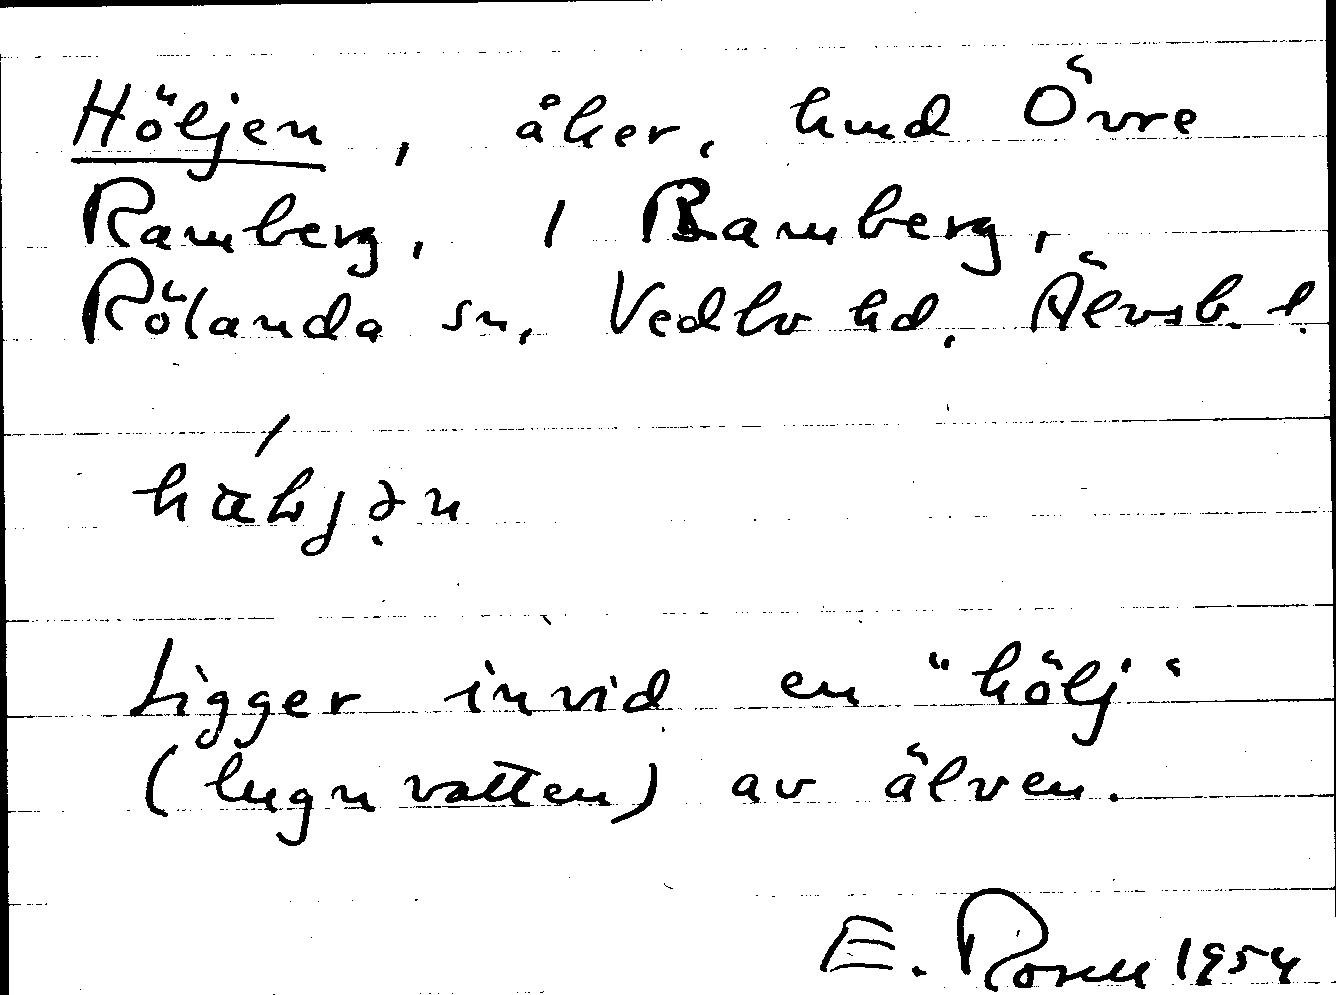 Höljen, åker, hmd Övre
Ramberg, 1 Ramberg,
Rölanda sn, Vedbo hd, Älvsb. l.
Ligger invid en "hölj"
(lugnvatten) av älven.
E. Rosell 1954